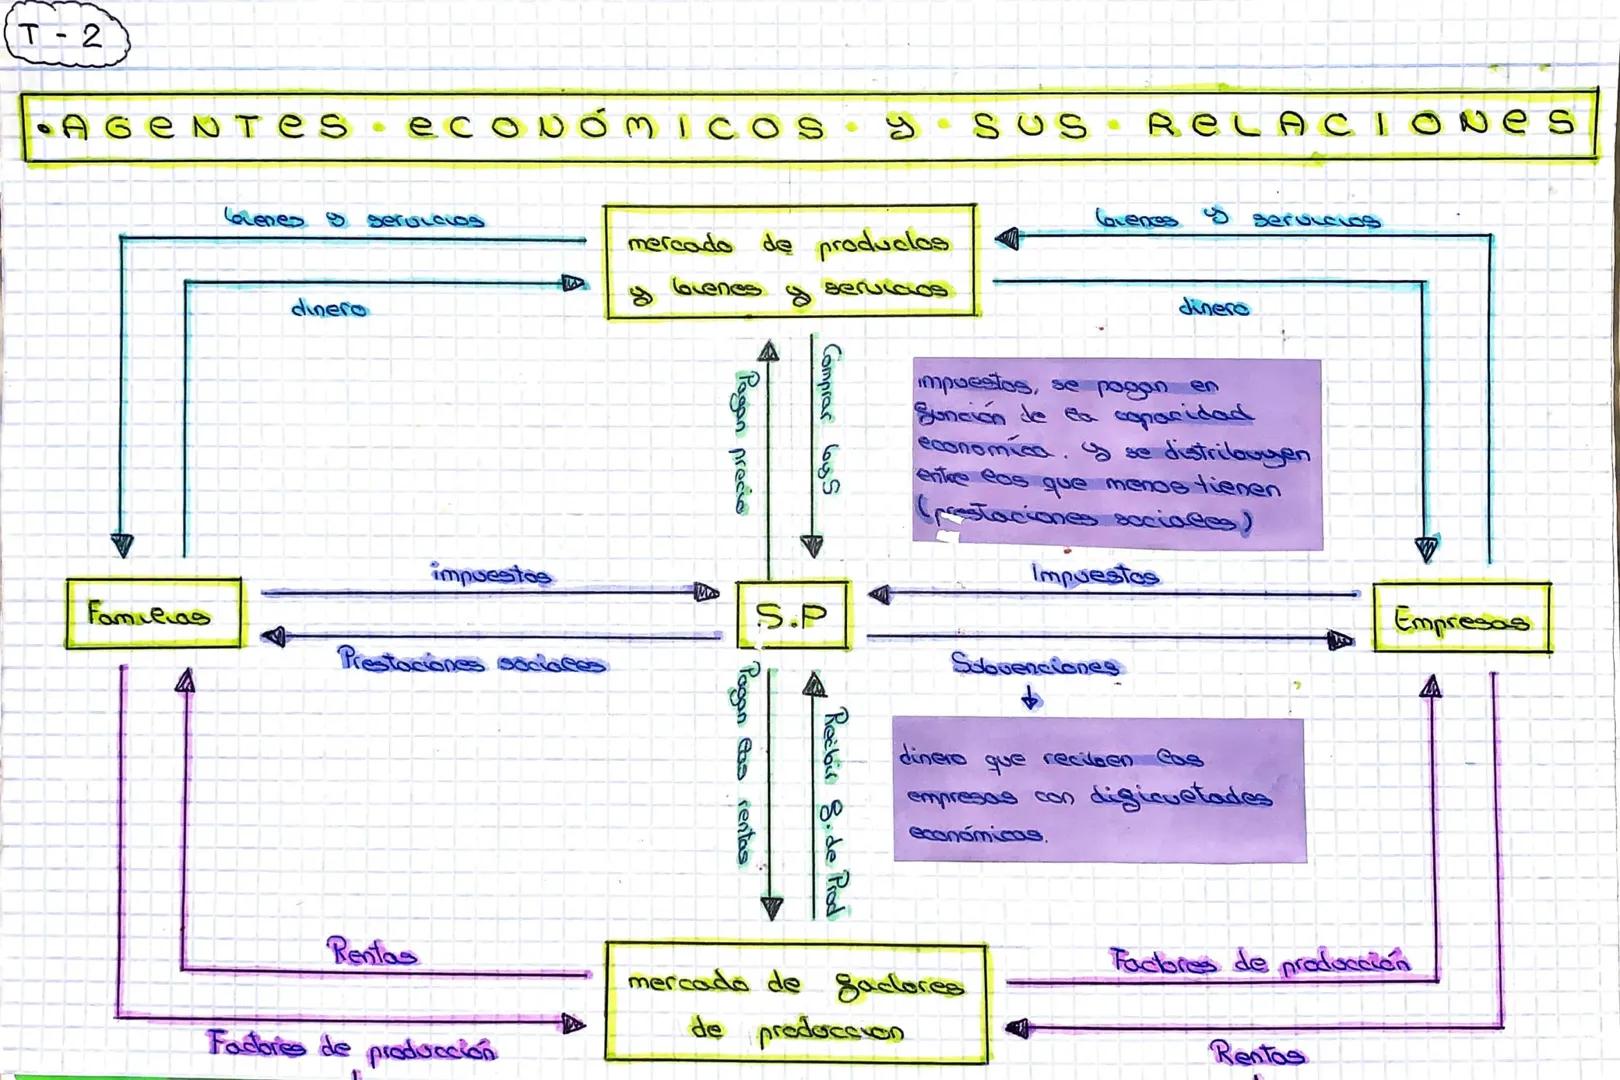 T - 2
• AGENTES • ECONÓMICOS • y • SUS • RELACIONES
bienes y servicios
mercado de productos
y bienes y servicios
bienes y servicios
dinero
dinero
Pagan precio
Comprar byS
impuestos, se pagan en
función de la capacidad
económica. y se distribuyen
entre los que menos tienen
(prestaciones sociales)
impuestos
Impuestos
Familias
S.P
Empresas
Prestaciones sociales
Subvenciones
Pagan las rentas
Recibir f. de Prod
dinero que reciben las
empresas con dificultades
económicas.
Rentas
mercado de factores
de produccion
Factores de producción
Factores de producción
Rentas